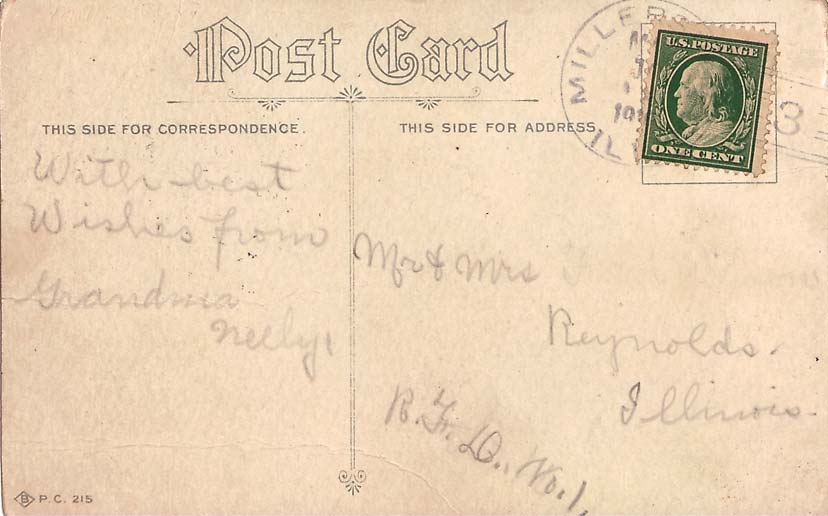 Post Card
THIS SIDE FOR CORRESPONDENCE.
THIS SIDE FOR ADDRESS.
U.S. POSTAGE
ONE CENT
3
With best
Wishes from
Grandma
Neely,
Mr & Mrs
Reynolds.
Illinois.
R.F.D., No. 1,
B P.C. 215